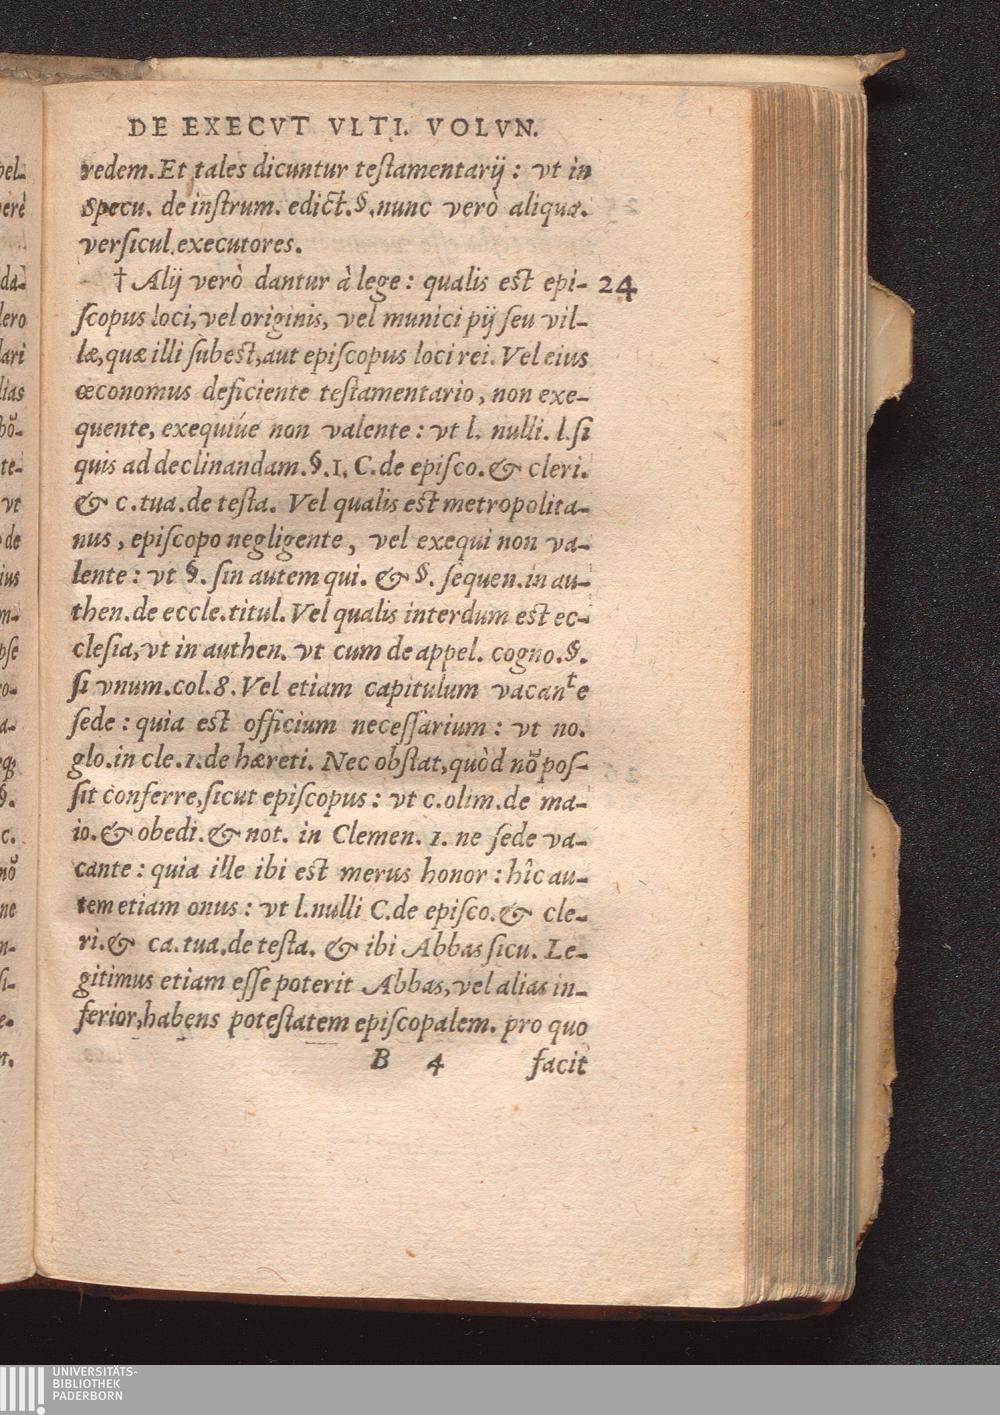 DE EXECVT VLTI. VOLVN.
redem. Et tales dicuntur testamentarij: vt in
Specu. de instrum. edict. §. nunc verò aliqua.
versicul. executores.
† Alij verò dantur à lege: qualis est epi- 24
scopus loci, vel originis, vel municipij seu vil-
læ, quæ illi subest, aut episcopus loci rei. Vel eius
œconomus deficiente testamentario, non exe-
quente, exequiúe non valente: vt l. nulli. l. si
quis ad declinandam. §. 1. C. de episco. & cleri.
& c. tua. de testa. Vel qualis est metropolita-
nus, episcopo negligente, vel exequi non va-
lente: vt §. sin autem qui. & §. sequen. in au-
then. de eccle. titul. Vel qualis interdum est ec-
clesia, vt in authen. vt cum de appel. cogno. §.
si vnum. col. 8. Vel etiam capitulum vacante
sede: quia est officium necessarium: vt no.
glo. in cle. 1. de hæreti. Nec obstat, quòd nõ pos-
sit conferre, sicut episcopus: vt c. olim. de ma-
io. & obedi. & not. in Clemen. 1. ne sede va-
cante: quia ille ibi est merus honor: hîc au-
tem etiam onus: vt l. nulli C. de episco. & cle-
ri. & ca. tua. de testa. & ibi Abbas sicu. Le-
gitimus etiam esse poterit Abbas, vel alias in-
ferior, habens potestatem episcopalem. pro quo
B 4 facit
pel-
erè
da-
lero
lari
lias
bõ-
te-
vt
de
ius
m-
pse
ro-
a-
§.
c.
nõ
ne
n-
si-
e-
nt.
UNIVERSITÄTS-
BIBLIOTHEK
PADERBORN